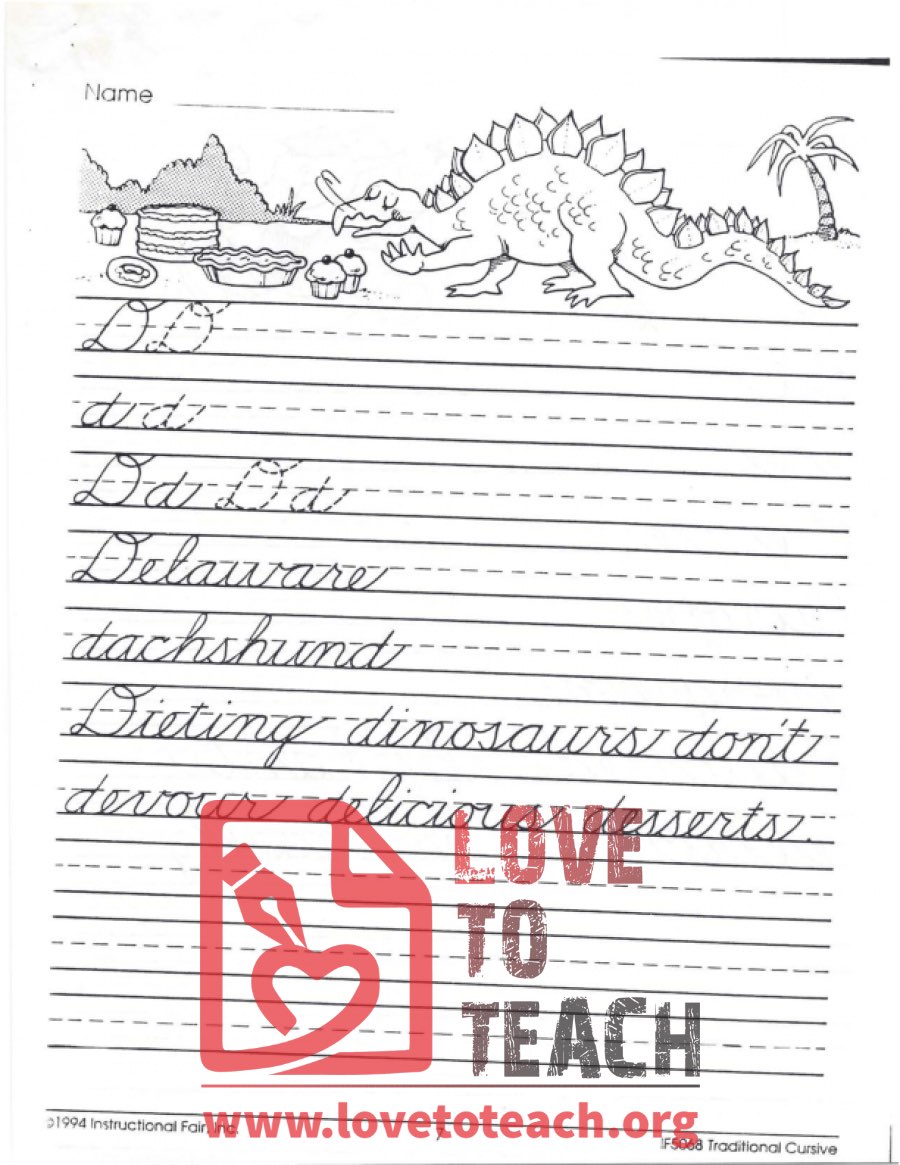 Name
D D
d d
D d D d
Delaware
dachshund
Dieting dinosaurs don't
devour delicious desserts.
LOVE
TO
TEACH
www.lovetoteach.org
©1994 Instructional Fair, Inc.
7
IF5068 Traditional Cursive